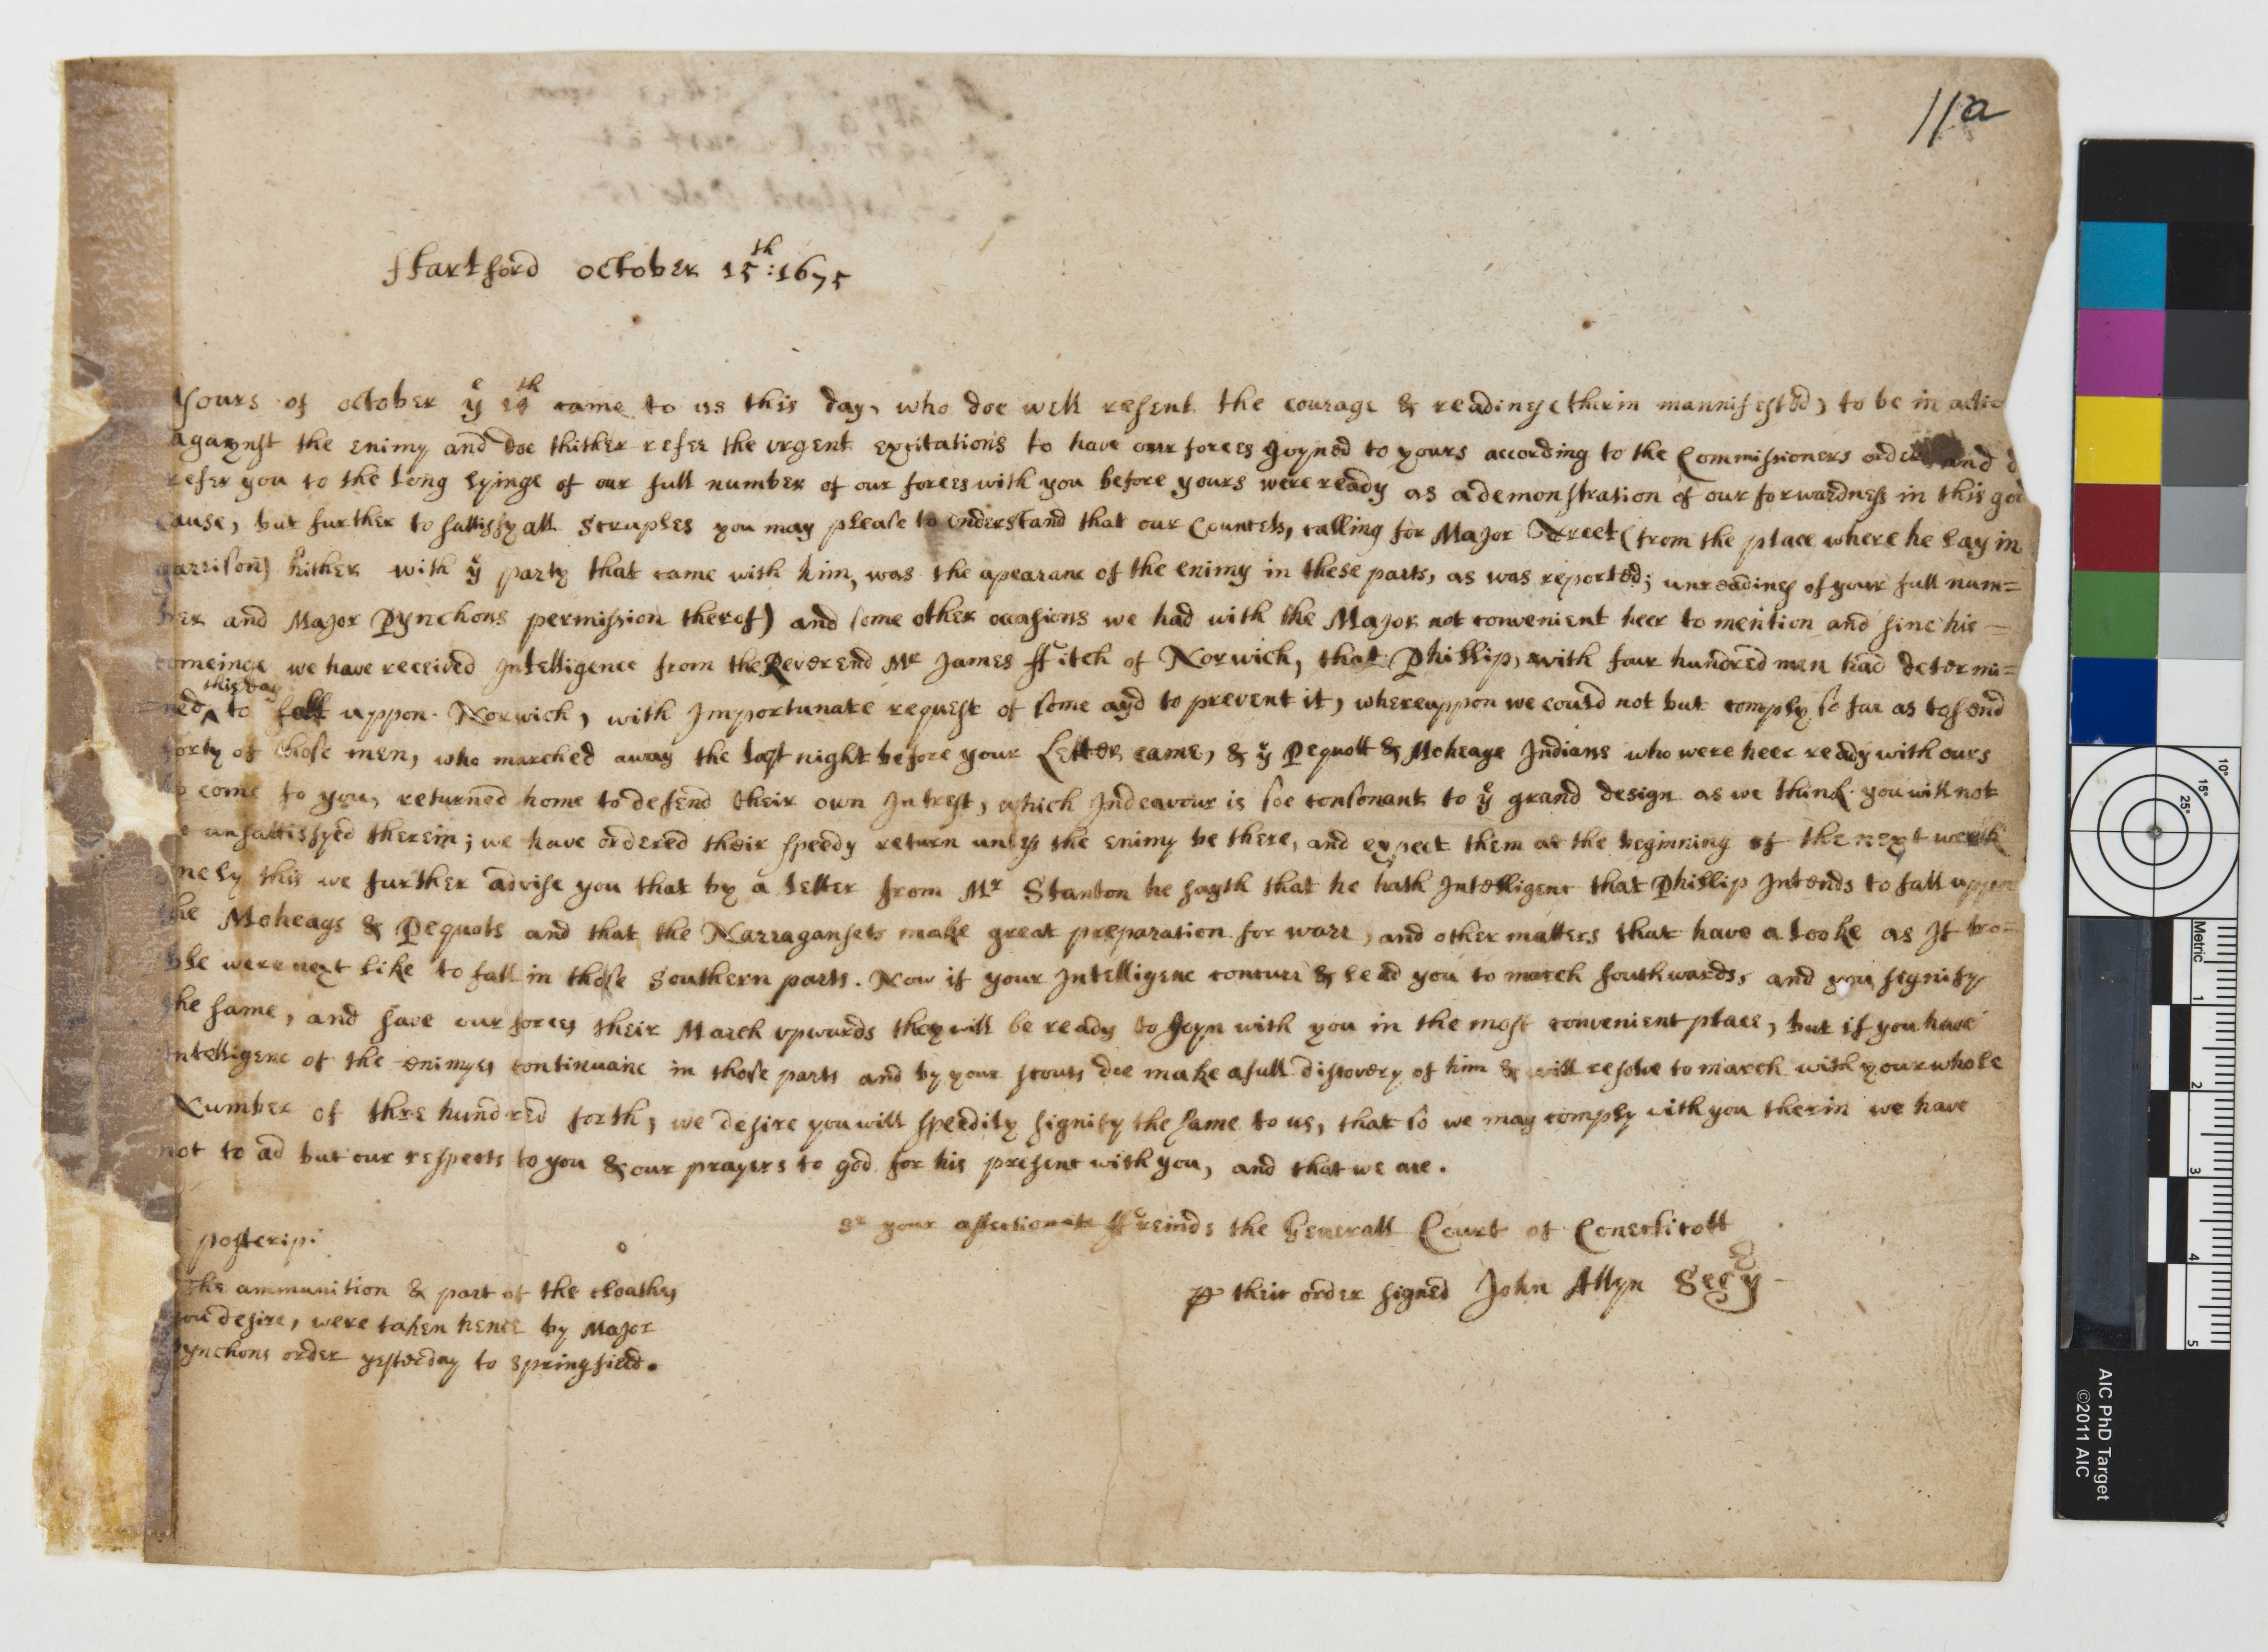 11a
Hartford october 15th: 1675
Yours of october ye came to us this day, who doe well resent the courage & readinese therin mannifested, to be in actio
agaynst the enimy and doe thither refer the urgent excitations to have our forces Joyned to yours according to the Commissioners order and d
refer you to the long lyinge of our full number of our forces with you before yours were ready as a demonstration of our forwardness in this god
cause, but further to sattissfy all scruples you may please to understand that our Councels, calling for Major Treet (from the place where he lay in
garrison) hither with ye party that came with him, was the apearanc of the enimy in these parts, as was reported; unreadines of your full num=
ber and Major Pynchons permission therof) and some other occasions we had with the Major not convenient heer to mention and sinc his
comeinge we have received Intelligence from the Reverend Mr James ffitch of Norwich, that Phillip, with four hundred men had determi=
=ned this day to fall uppon Norwich, with Importunate request of some ayd to prevent it, whereuppon we could not but comply so far as to send
forty of those men, who marched away the last night before your Letter came, & ye Pequott & Moheage Indians who were heer ready with ours
to come to you, returned home to defend their own Intrest, which Indeavour is soe consonant to ye grand design as we think you will not
be unsattissfyed therein; we have ordered their speedy return unless the enimy be there, and expect them at the beginning of the next week
onely this we further advise you that by a letter from Mr Stanton he sayth that he hath Intelligenc that Phillip Intends to fall uppon
the Moheags & Pequots and that the Narragansets make great preparation for warr, and other matters that have a looke as If tro=
ble were next like to fall in those Southern parts. Now if your Intelligenc concurr & lead you to march southwards, and you signify
the same, and save our forces their March upwards they will be ready to Joyn with you in the most convenient place, but if you have
intelligenc of the enimyes continuanc in those parts and by your scouts doe make a full discovery of him & will resolve to march with your whole
Number of thre hundred forth, we desire you will speedily signify the same to us, that so we may comply with you therin we have
not to ad but our respects to you & our prayers to god for his presenc with you, and that we are.
Sr your affectionate ffreinds the Generall Court of Conecticott
postcrip:
The ammunition & part of the cloathes
you desire, were taken hence by Major
Pynchons order yesterday to Springfield.
p their order signed John Allyn Secry
Metric
1
2
3
4
5
10°
15°
25°
AIC PhD Target
©2011 AIC